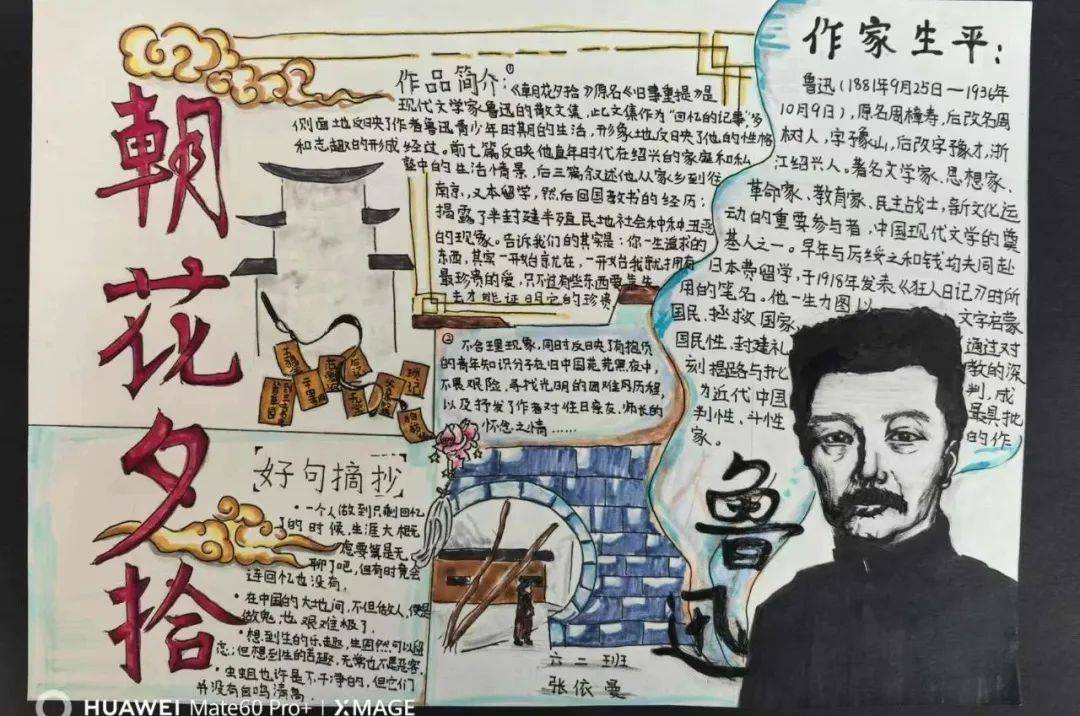 朝花夕拾
作品简介:①《朝花夕拾》原名《旧事重提》是
现代文学家鲁迅的散文集,此文集作为“回忆的记事”多
侧面地反映了作者鲁迅青少年时期的生活,形象地反映了他的性格
和志趣的形成经过。前七篇反映他童年时代在绍兴的家庭和私
塾中的生活情景,后三篇叙述他从家乡到往
南京,又本留学,然后回国教书的经历;
揭露了半封建半殖民地社会种种丑恶
的现象。告诉我们的其实是:你一生追求的
东西,其实一开始就在,一开始我就拥有
最珍贵的爱,只不过有些东西要靠失
去才能证明它的珍贵
②不合理现象,同时反映了有抱负
的青年知识分子在旧中国茫茫黑夜中,
不畏艰险,寻找光明的困难历程,
以及抒发了作者对往日亲友,师长的
怀念之情……
好句摘抄
·一个人做到只剩回忆
了的时候,生涯大概
要算是无
聊了吧,但有时竟会
连回忆也没有。
·在中国的大地间,不但做人,便是
做鬼,也艰难极了。
·想到生的乐趣,生固然可以留
恋;但想到生的苦趣,无常也不是恶客.
·虫蛆也许是不干净的,但它们
并没有自鸣清高
六二班
张依曼
作家生平:
鲁迅(1881年9月25日—1936年
10月9日),原名周樟寿,后改名周
树人,字豫山,后改字豫才,浙
江绍兴人。著名文学家、思想家、
革命家、教育家、民主战士,新文化运
动的重要参与者,中国现代文学的奠
基人之一。早年与厉绥之和钱均夫同赴
日本费留学,于1918年发表《狂人日记》时所
用的笔名。他一生力图以文字启蒙
国民,拯救国家,通过对
国民性,封建礼教的深
刻揭露与批判,成
为近代中国最具批
判性、斗性的作
家。
鲁迅
HUAWEI Mate60 Pro+ | XMAGE